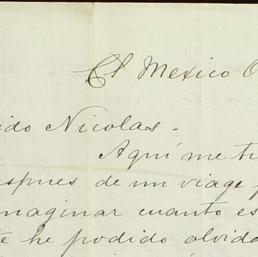 El Mexico O
ido Nicolas.
Aquí me ti
espues de un viage p
maginar cuanto es
te he podido olvida